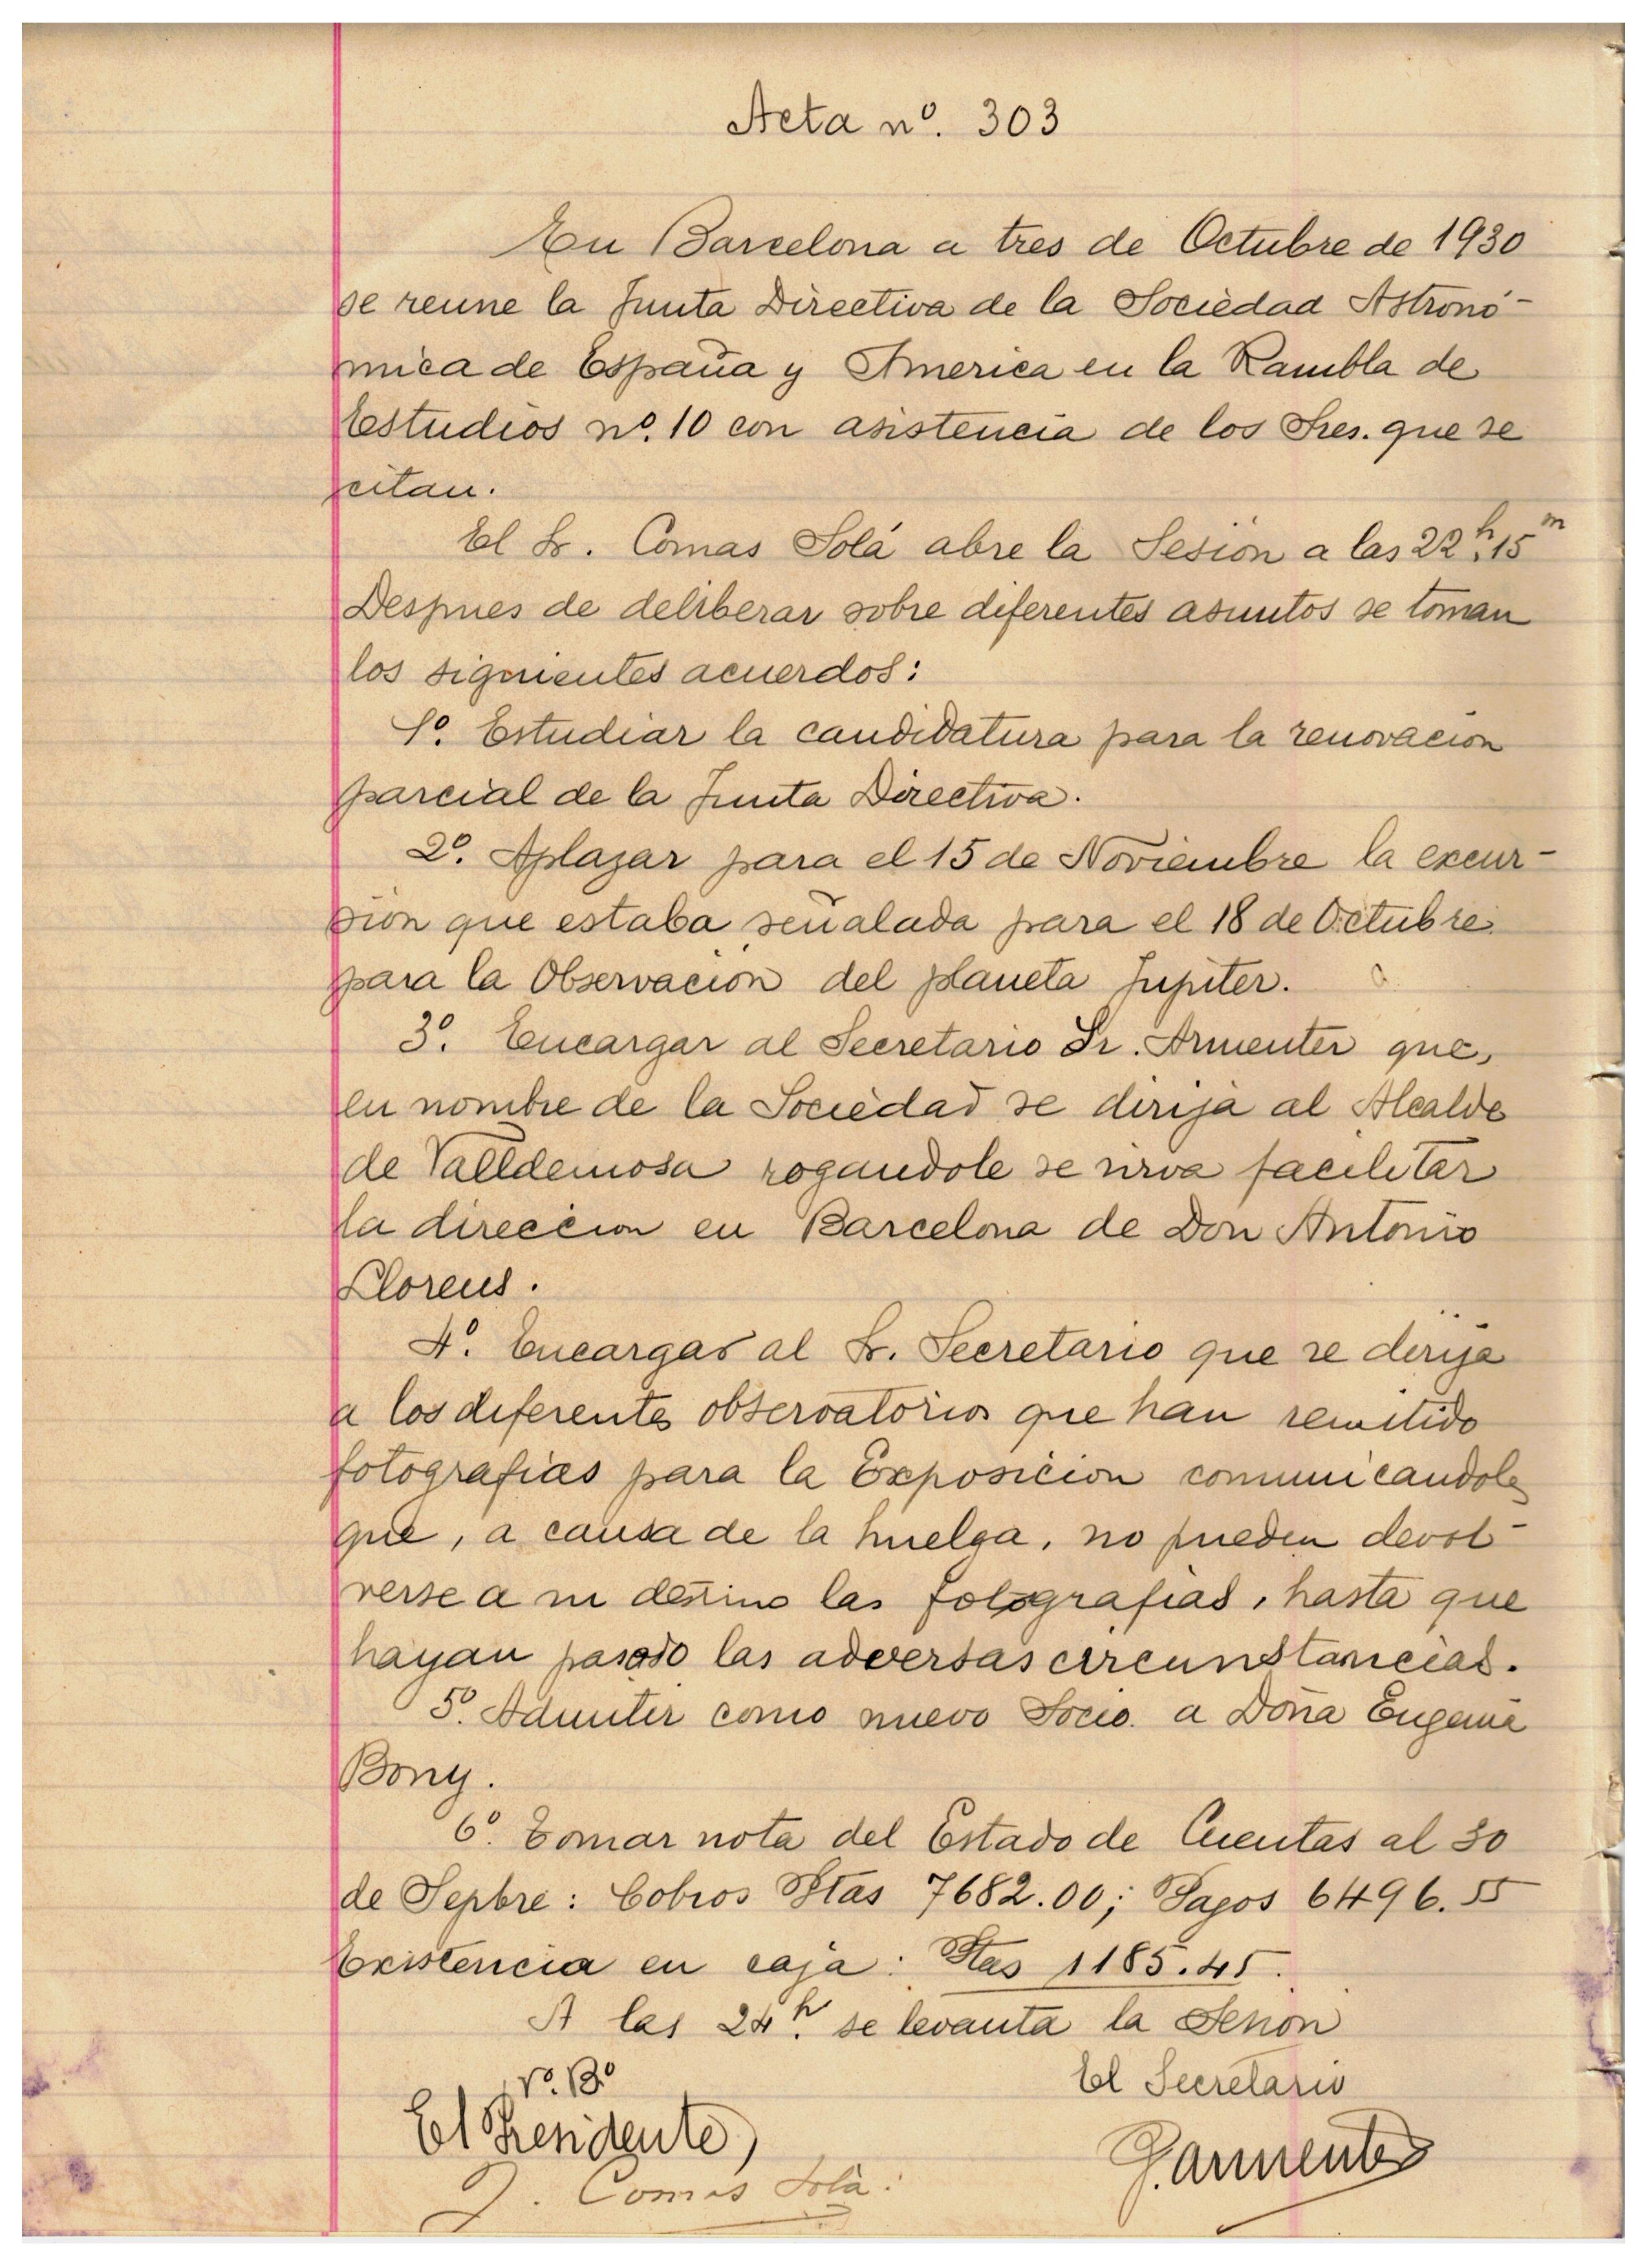 Acta nº. 303
En Barcelona a tres de Octubre de 1930
se reune la Junta Directiva de la Sociedad Astronó-
mica de España y America en la Rambla de
Estudios nº. 10 con asistencia de los Sres. que se
citan.
El Sr. Comas Solá abre la Sesión a las 22h.15m
Despues de deliberar sobre diferentes asuntos se toman
los siguientes acuerdos:
1º. Estudiar la candidatura para la renovacion
parcial de la Junta Directiva.
2º. Aplazar para el 15 de Noviembre la excur-
sion que estaba señalada para el 18 de Octubre
para la Observacion del planeta Jupiter.
3º. Encargar al Secretario Sr. Armenter que,
en nombre de la Sociedad se dirija al Alcalde
de Valldemosa rogandole se sirva facilitar
la direccion en Barcelona de Don Antonio
Llorens.
4º. Encargar al Sr. Secretario que se dirija
a los diferentes observatorios que han remitido
fotografias para la Exposicion comunicandole
que, a causa de la huelga, no pueden devol-
verse a su destino las fotografias, hasta que
hayan pasado las adversas circunstancias.
5º. Admitir como nuevo Socio a Doña Eugenia
Bony.
6º. Tomar nota del Estado de Cuentas al 30
de Sepbre: Cobros Ptas 7682.00; Pagos 6496.55
Existencia en caja: Ptas 1185.45.
A las 24h. se levanta la Sesion
Vº. Bº El Secretario
El Presidente,
J. Comas Solà. J. Armenter